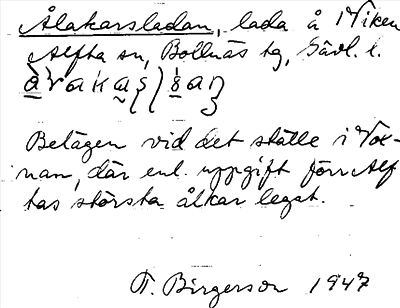 Ålakarsladan, lada å Viken
Alfta sn, Bollnäs tg, Gävl. l.
Belägen vid det ställe i Vox-
nan, där enl. uppgift förr Alf
tas största ålkar legat.
T. Birgerson 1947